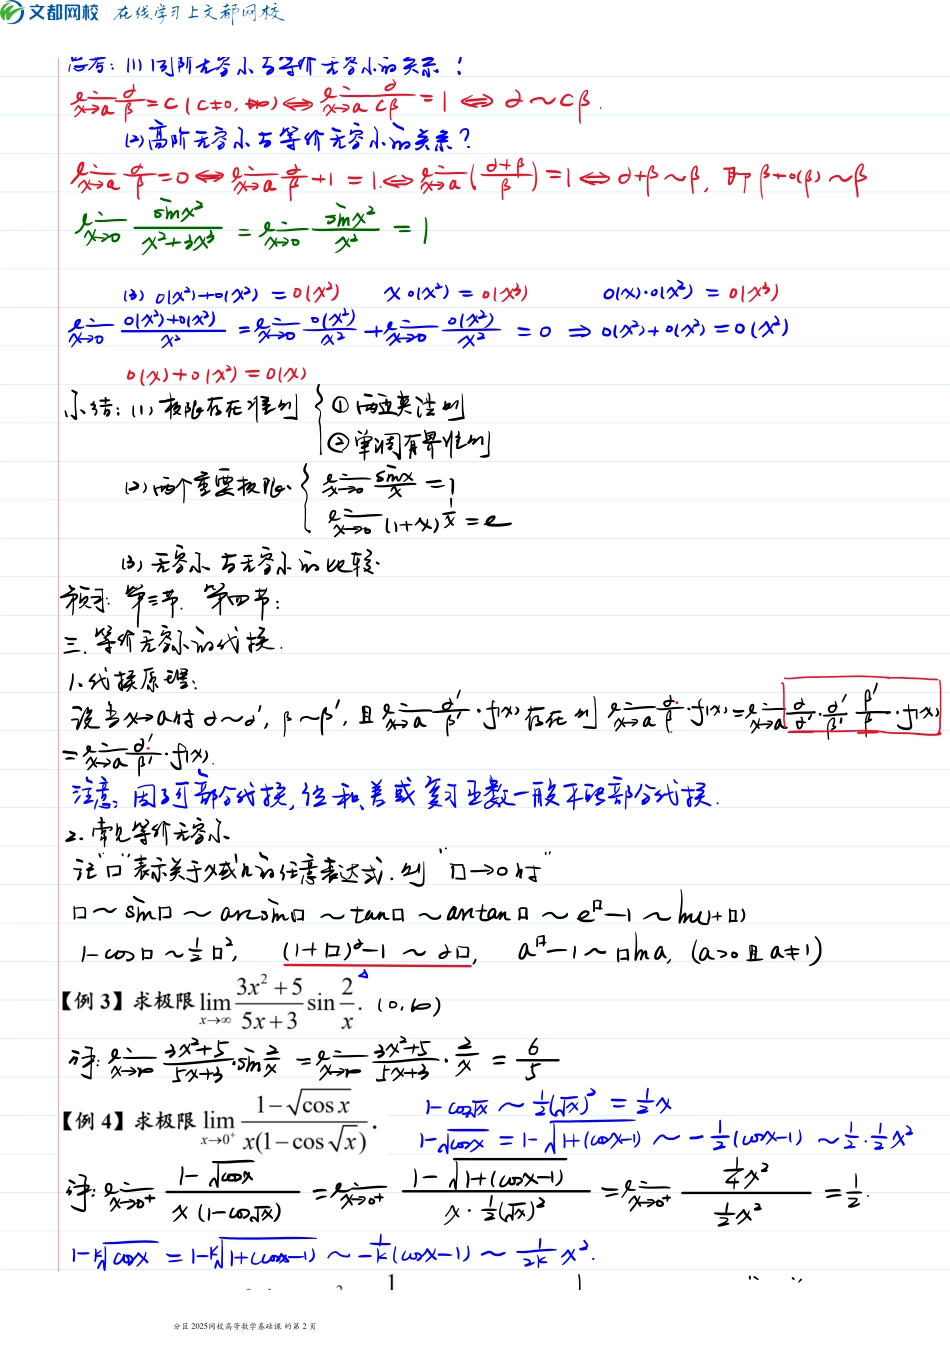 文都网校 在线学习上文都网校
思考：(1) 同阶无穷小与等价无穷小的关系！
lim x→a α/β = C (C≠0, ) ⇔ lim x→a α/(Cβ) = 1 ⇔ α ~ Cβ.
(2) 高阶无穷小与等价无穷小的关系？
lim x→a α/β = 0 ⇔ lim x→a α/β + 1 = 1. ⇔ lim x→a ((α+β)/β) = 1 ⇔ α+β ~ β, 即 β+o(β) ~ β
lim x→0 sinx²/(x²+3x³) = lim x→0 sinx²/x² = 1
(3) o(x²)+o(x²) = o(x²) x o(x²) = o(x³) o(x)·o(x²) = o(x³)
lim x→0 (o(x²)+o(x²))/x² = lim x→0 o(x²)/x² + lim x→0 o(x²)/x² = 0 ⇒ o(x²)+o(x²) = o(x²)
o(x)+o(x²) = o(x)
小结：(1) 极限存在准则 { ① 两边夹法则
② 单调有界准则
(2) 两个重要极限 { lim x→0 sinx/x = 1
lim x→0 (1+x)^(1/x) = e
(3) 无穷小与无穷小的比较.
预习：第三节. 第四节：
三. 等价无穷小的代换.
1. 代换原理：
设当 x→a 时 α~α′, β~β′, 且 lim x→a α′/β′·f(x) 存在 则 lim x→a α/β·f(x) = lim x→a α/α′·α′/β′·β′/β·f(x)
= lim x→a α′/β′·f(x).
注意：因子可部分代换, 但和差或复习函数一般不能部分代换.
2. 常见等价无穷小
记"□"表示关于x或n的任意表达式. 则 "□→0时"
□ ~ sin□ ~ arcsin□ ~ tan□ ~ arctan□ ~ e^□−1 ~ ln(1+□)
1−cos□ ~ ½□², (1+□)^α−1 ~ α□, a^□−1 ~ □lna, (a>0 且 a≠1)
【例 3】求极限 lim x→∞ (3x²+5)/(5x+3) sin 2/x. (0, 6)
解: lim x→∞ (3x²+5)/(5x+3)·sin 2/x = lim x→∞ (3x²+5)/(5x+3)·2/x = 6/5
【例 4】求极限 lim x→0⁺ (1−√cos x)/(x(1−cos√x)). 1−cos√x ~ ½(√x)² = ½x
1−√cosx = 1−√(1+(cosx−1)) ~ −½(cosx−1) ~ ½·½x²
解: lim x→0⁺ (1−√cosx)/(x(1−cos√x)) = lim x→0⁺ (1−√(1+(cosx−1)))/(x·½(√x)²) = lim x→0⁺ (¼x²)/(½x²) = ½.
1−ᵏ√cosx = 1−ᵏ√(1+(cosx−1)) ~ −1/k (cosx−1) ~ 1/(2k) x².
分区 2025网校高等数学基础课 的第 2 页